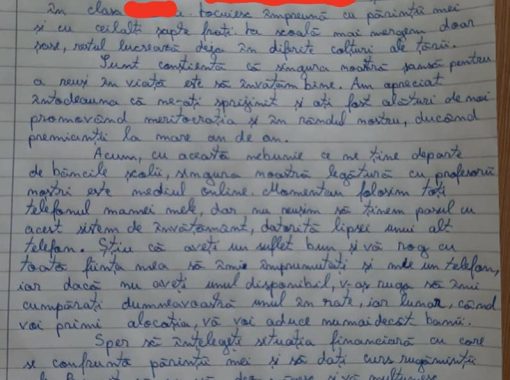 în clasa locuiesc împreună cu părinții mei
și cu ceilalți șapte frați. La școală mai mergem doar
șase, restul lucrează deja în diferite colțuri ale țării.
Sunt conștientă că singura noastră șansă pentru
a reuși în viață este să învățăm bine. Am apreciat
întodeauna că ne-ați sprijinit și ați fost alături de noi
promovând meritocrația și în rândul nostru, ducând
premianții la mare an de an.
Acum, cu această nebunie ce ne ține departe
de băncile școlii, singura noastră legătură cu profesorii
noștri este mediul online. Momentan folosim toți
telefonul mamei mele, dar nu reușim să ținem pasul cu
acest sistem de învățământ, datorită lipsei unui alt
telefon. Știu că aveți un suflet bun și vă rog cu
toată ființa mea să îmi împrumutați și mie un telefon,
iar dacă nu aveți unul disponibil, v-aș ruga să îmi
cumpărați dumneavoastră unul în rate, iar lunar, când
voi primi alocația, vă voi aduce numaidecât banii.
Sper să înțelegeți situația financiară cu care
se confruntă părinții mei și să dați curs rugăminții